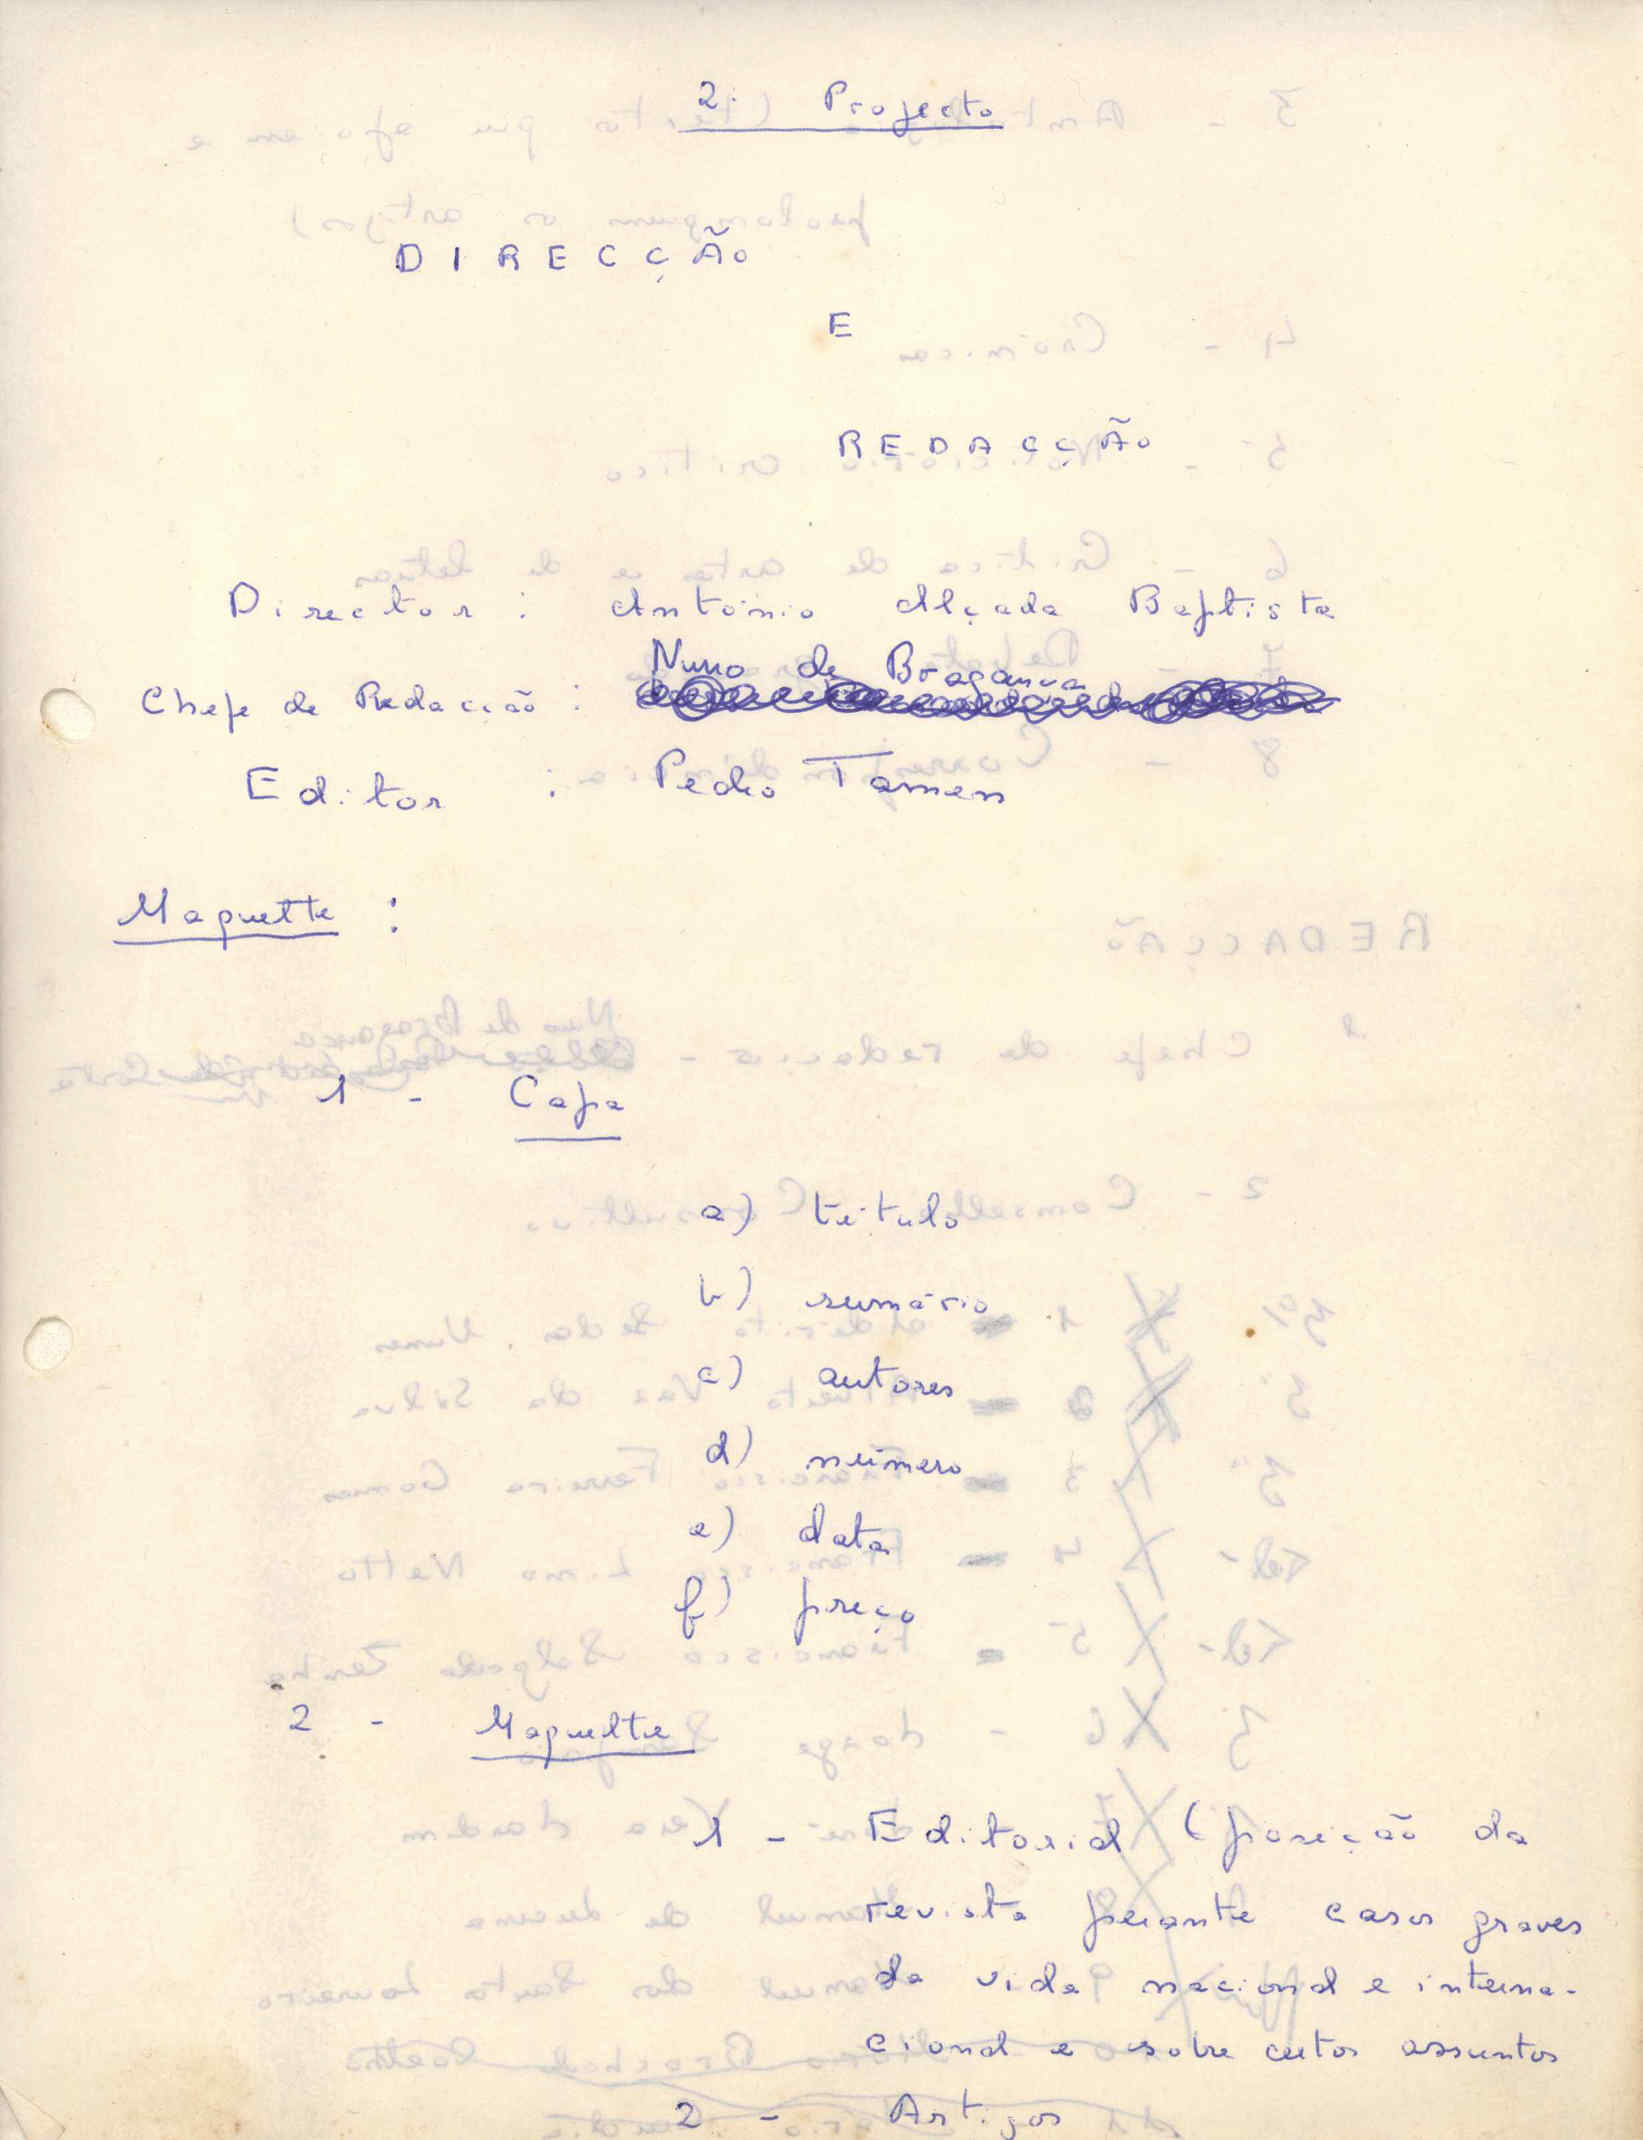 2. Projecto
DIRECÇÃO
E
REDACÇÃO
Director : António Alçada Baptista
Nuno de Bragança
Chefe de Redacção :
Editor : Pedro Tamen
Maquette :
1 - Capa
a) título
b) sumário
c) autores
d) número
e) data
f) preço
2 - Maquette
1 - Editorial (posição da
revista perante casos graves
da vida nacional e interna-
cional e sobre certos assuntos
2 - Artigos